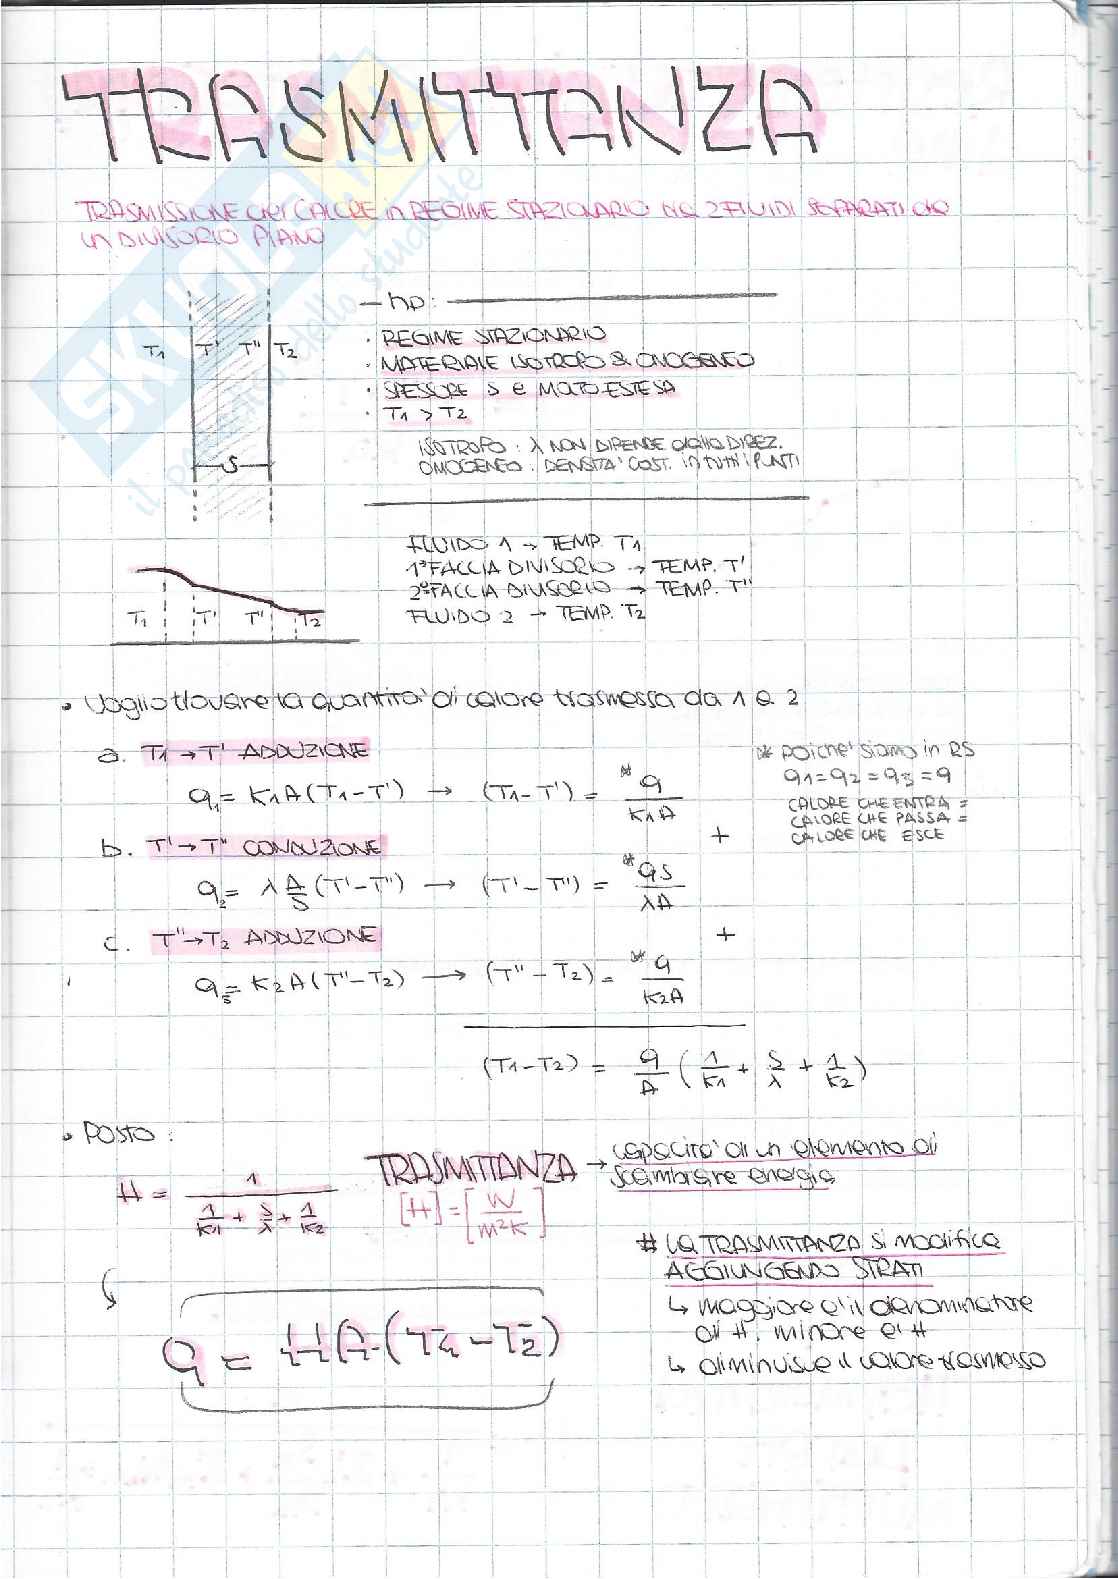 TRASMITTANZA
TRASMISSIONE del CALORE in REGIME STAZIONARIO tra 2 FLUIDI SEPARATI da
un DIVISORIO PIANO
SKUOLA.net
il paradiso dello studente
T1 T' T'' T2
S
hp:
· REGIME STAZIONARIO
· MATERIALE ISOTROPO & OMOGENEO
· SPESSORE S e MOLTO ESTESA
· T1 > T2
ISOTROPO: λ NON DIPENDE dalla DIREZ.
OMOGENEO: DENSITA' COST. in TUTTI i PUNTI
FLUIDO 1 → TEMP. T1
1ª FACCIA DIVISORIO → TEMP. T'
2ª FACCIA DIVISORIO → TEMP. T''
FLUIDO 2 → TEMP. T2
T1 T' T'' T2
• Voglio trovare la quantita' di calore trasmessa da 1 a 2
a. T1 → T' ADDUZIONE
q1 = K1A(T1-T') → (T1-T') = * q / K1A
* poiche' siamo in RS
q1 = q2 = q3 = q
CALORE CHE ENTRA =
CALORE CHE PASSA =
CALORE CHE ESCE
+
b. T' → T'' CONDUZIONE
q2 = λ A/S (T'-T'') → (T'-T'') = * qS / λA
+
c. T'' → T2 ADDUZIONE
q3 = K2A(T''-T2) → (T''-T2) = * q / K2A
(T1-T2) = q/A (1/K1 + S/λ + 1/K2)
• POSTO:
H = 1 / (1/K1 + S/λ + 1/K2)
TRASMITTANZA → capacita' di un elemento di
scambiare energia
[H] = [W / m²K]
# La TRASMITTANZA si modifica
AGGIUNGENDO STRATI
↳ maggiore e' il denominatore
di H, minore e' H
↳ diminuisce il calore trasmesso
q = HA·(T1-T2)